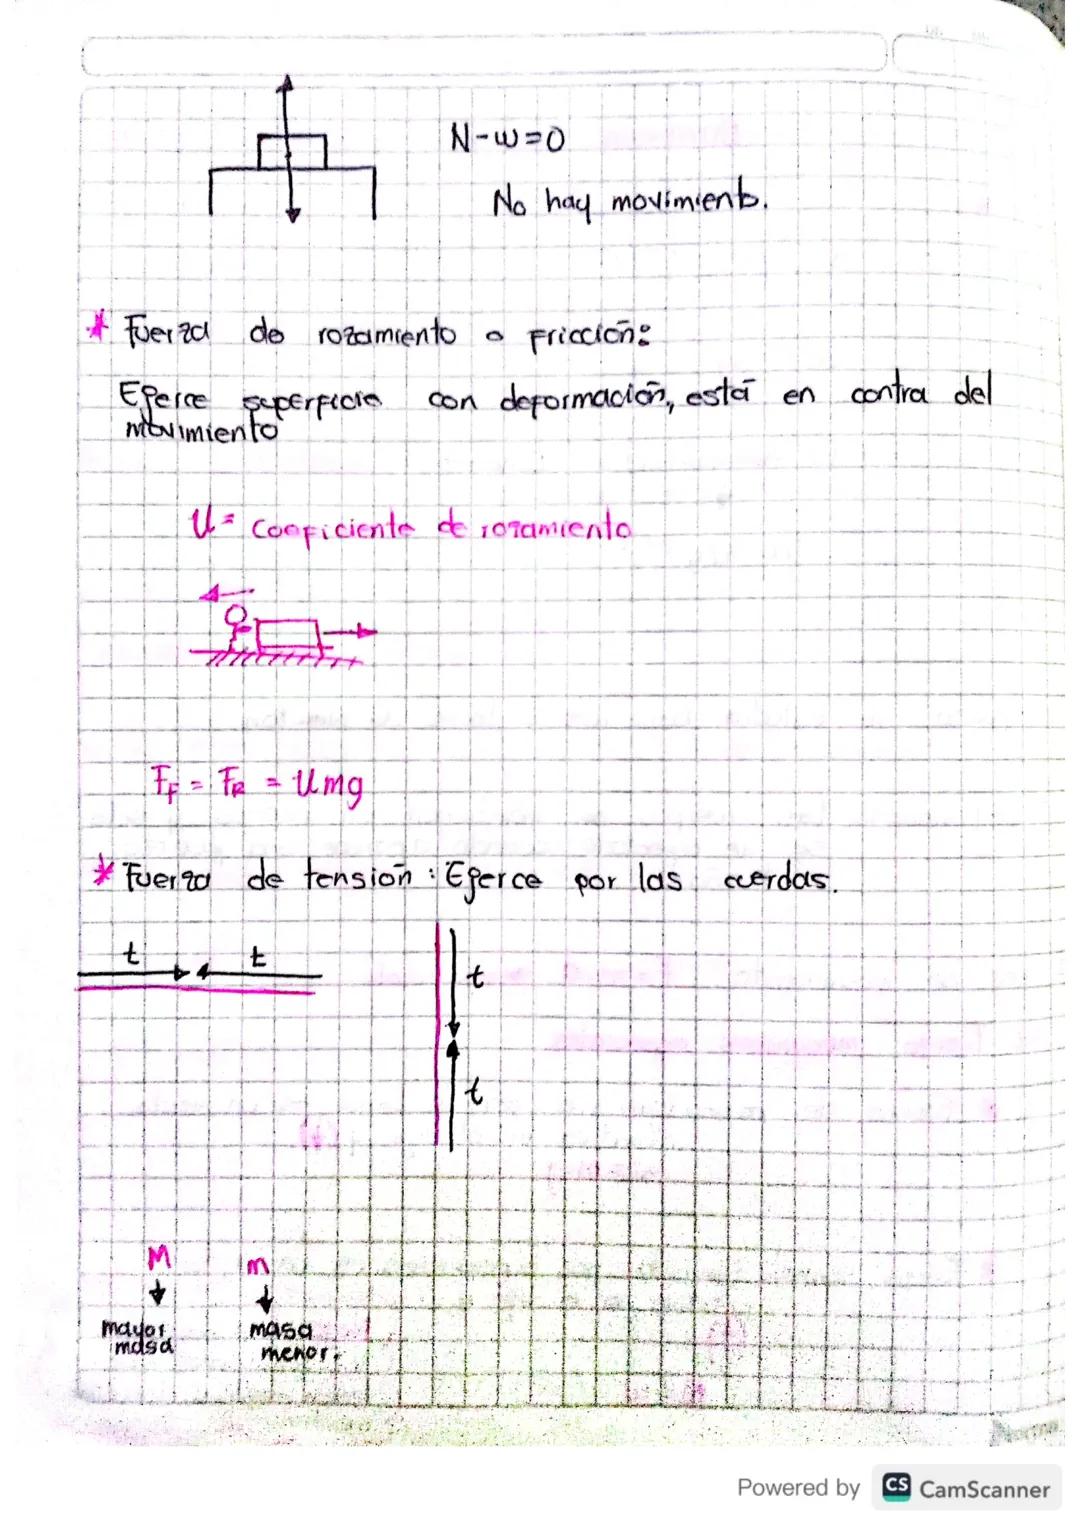 N-w=0
No hay movimiento.
* Fuerza de rozamiento o Fricción:
Ejerce superficie con deformación, está en contra del
movimiento
U= Coeficiente de rozamiento
FF = FR = Umg
* Fuerza de tensión: Ejerce por las cuerdas.
t t
t
t
M m
mayor masa
masa menor.
Powered by CS CamScanner